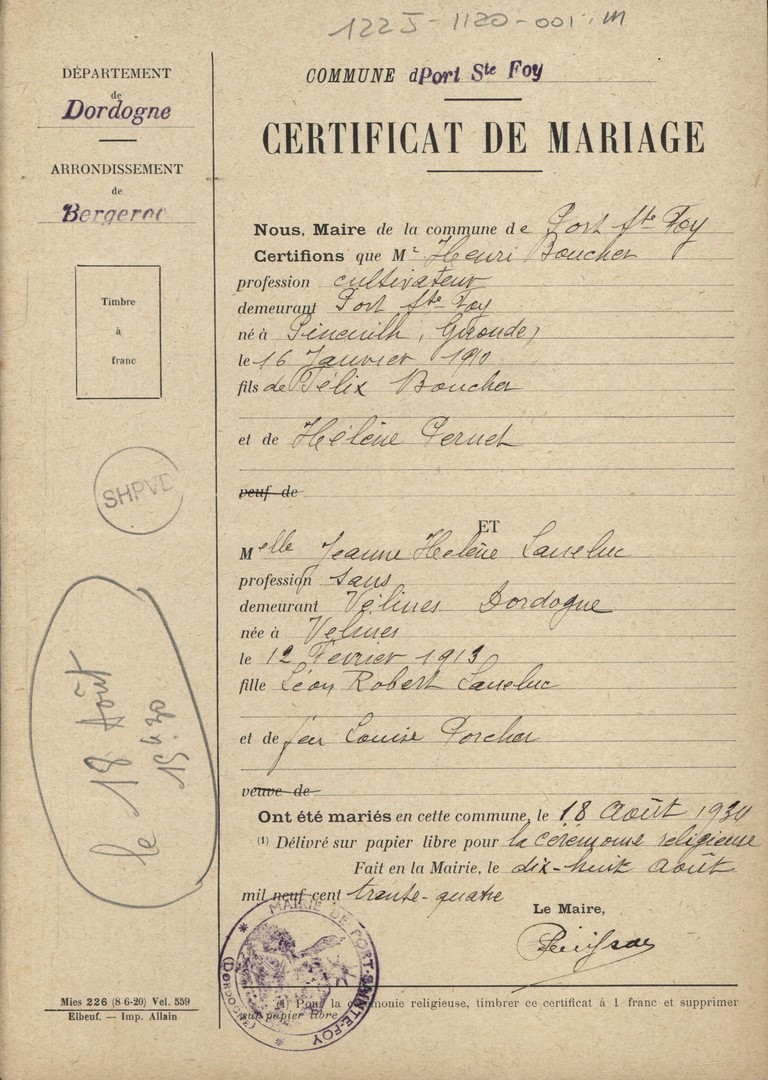 122J-1120-001.m
DÉPARTEMENT
de
Dordogne
ARRONDISSEMENT
de
Bergerac
Timbre
à
franc
SHPVD
le 18 Août
15 h. 30
Mies 226 (8 6-20) Vel. 559
Elbeuf. — Imp. Allain
COMMUNE d Port Ste Foy
CERTIFICAT DE MARIAGE
Nous, Maire de la commune de Port Ste Foy
Certifions que Mr Henri Boucher
profession cultivateur
demeurant Port Ste Foy
né à Pineuilh, (Gironde)
le 16 Janvier 1910
fils de Félix Boucher
et de Hélène Pernet
veuf de
ET
Melle Jeanne Helène Laneluc
profession sans
demeurant Vélines Dordogne
née à Velines
le 12 Février 1913
fille Léon Robert Laneluc
et de feu Louise Porcher
veuve de
Ont été mariés en cette commune, le 18 Août 1934
(1) Délivré sur papier libre pour la cérémonie religieuse
Fait en la Mairie, le dix-huit Août
mil neuf cent trente-quatre
Le Maire,
MAIRIE DE PORT-SAINTE-FOY
(DORDOGNE)
(1) Pour la cérémonie religieuse, timbrer ce certificat à 1 franc et supprimer
sur papier libre